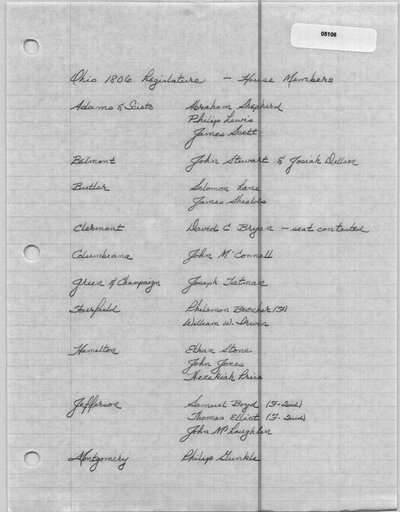 05106
Ohio 1806 Legislature - House Members
Adams & Scioto Abraham Shepherd
Philip Lewis
James Scott
Belmont John Stewart & Josiah Dillon
Butler Solomon Line
James Shields
Clermont David C Bryan - seat contested
Columbiana John McConnell
Green & Champaign Joseph Tatman
Fairfield Philemon Beecher (F)
William W. Irwin
Hamilton Ethan Stone
John Jones
Hezekiah Price
Jefferson Samuel Boyd
Thomas Elliot
John McLaughlin
Montgomery Philip Gunkle